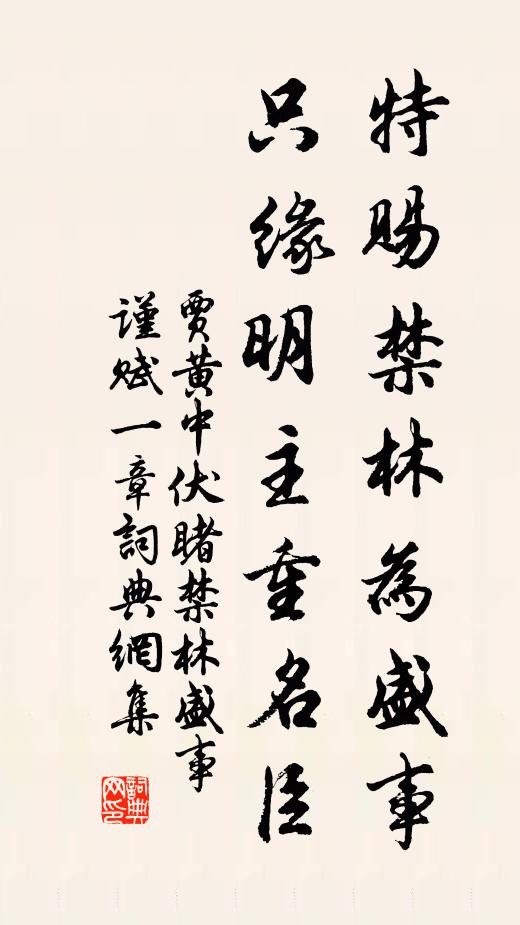 特賜禁林為盛事
只緣明主重名臣
賈黃中伏睹禁林盛事
謹賦一章詞典網集
詞典网印